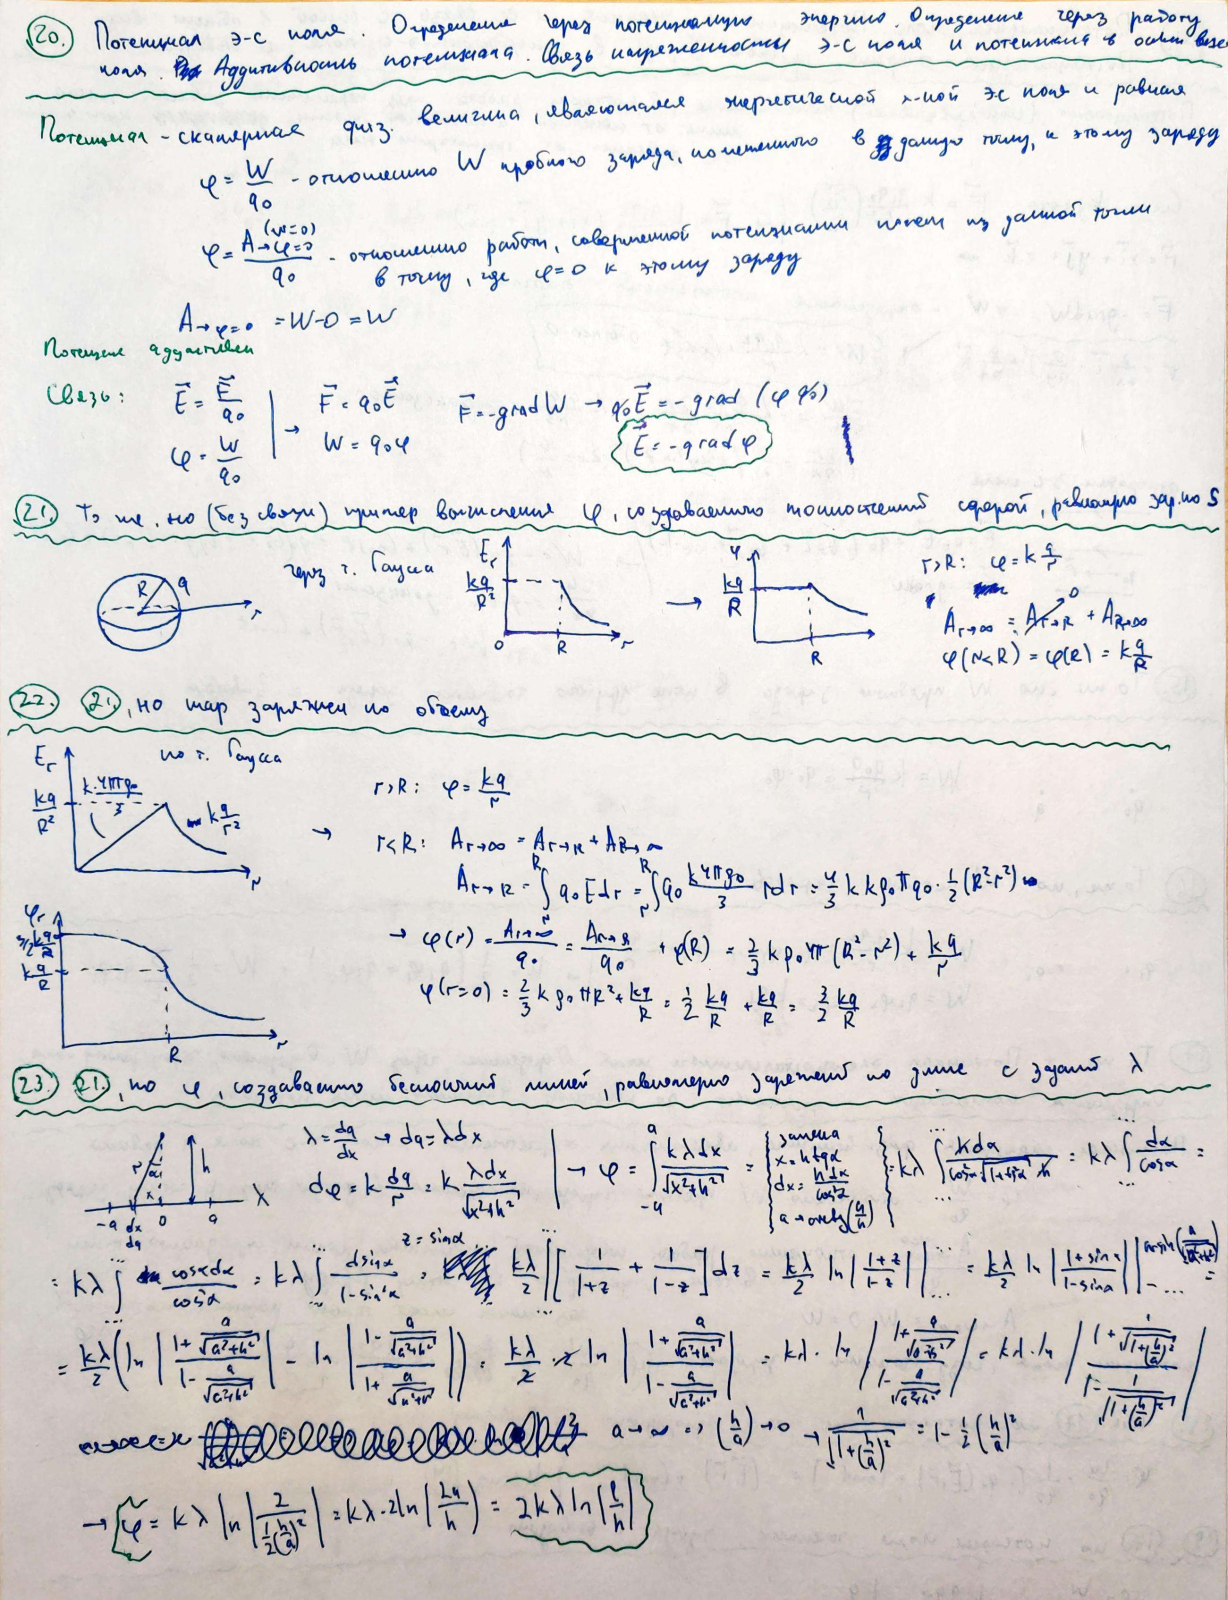 20. Потенциал э-с поля. Определение через потенциальную энергию. Определение через работу
поля. Аддитивность потенциала. Связь напряженности э-с поля и потенциала в общем виде
Потенциал - скалярная физ. величина, являющаяся энергетической х-кой эс поля и равная
φ = W/q₀ - отношению W пробного заряда, помещенного в данную точку, к этому заряду
φ = A→φ=0 (W=0)/q₀ - отношению работы, совершенной потенциалом полем из данной точки
в точку, где φ=0 к этому заряду
A→φ=0 = W-0 = W
Потенциал аддитивен
Связь: E⃗ = F⃗/q₀ | → F⃗ = q₀E⃗ F⃗ = -grad W → q₀E⃗ = -grad (φ q₀)
φ = W/q₀ W = q₀φ E⃗ = -grad φ
21. То же, но (без связи) пример вычисления φ, создаваемого тонкостенной сферой, равномерно зар. по S
R q r через т. Гаусса Eᵣ kq/R² 0 R r → φ kq/R R r>R: φ = k q/r
Aᵣ→∞ = Aᵣ→R (0) + A_R→∞
φ(r<R) = φ(R) = k q/R
22. 21, но шар заряжен по объему
Eᵣ kq/R² k·4πρ₀/3 kq/r² r по т. Гаусса r>R: φ = kq/r
→ r<R: Aᵣ→∞ = Aᵣ→R + A_R→∞
Aᵣ→R = ∫ᵣᴿ q₀ E dr = ∫ᵣᴿ q₀ k4πρ₀/3 r dr = 4/3 k kρ₀πq₀ · 1/2 (R²-r²)
φᵣ 3/2 kq/R kq/R R r → φ(r) = Aᵣ→∞/q₀ = Aᵣ→R/q₀ + φ(R) = 2/3 kρ₀π(R²-r²) + kq/r
φ(r=0) = 2/3 kρ₀πR² + kq/R = 1/2 kq/R + kq/R = 3/2 kq/R
23. 21, но φ, создаваемого бесконечной линией, равномерно заряженной по длине с задан λ
r α h x -a dx dq 0 a λ λ = dq/dx → dq = λdx
dφ = k dq/r = k λdx/√(x²+h²) | → φ = ∫₋ₐᵃ kλdx/√(x²+h²) = { замена x = h tgα dx = hdα/cos²α a → arctg(a/h) } = kλ ∫ hdα/(cos²α √(1+tg²α) h) = kλ ∫ dα/cosα =
= kλ ∫ cosαdα/cos²α = kλ ∫ dsinα/(1-sin²α) = z = sinα kλ/2 ∫ [1/(1+z) + 1/(1-z)] dz = kλ/2 ln|(1+z)/(1-z)| = kλ/2 ln|(1+sinα)/(1-sinα)| | arcsin(a/√(a²+h²)) -... =
= kλ/2 (ln|(1+a/√(a²+h²))/(1-a/√(a²+h²))| - ln|(1-a/√(a²+h²))/(1+a/√(a²+h²))|) = kλ/2 · 2 ln|(1+a/√(a²+h²))/(1-a/√(a²+h²))| = kλ · ln|(1+a/√(a²+h²))/(1-a/√(a²+h²))| = kλ · ln|(1+1/√(1+(h/a)²))/(1-1/√(1+(h/a)²))|
a→∞ => (h/a)→0 → 1/√(1+(h/a)²) = 1 - 1/2 (h/a)²
→ φ = kλ ln|2/(1/2 (h/a)²)| = kλ · 2ln|2a/h| = 2kλ ln|l/h|